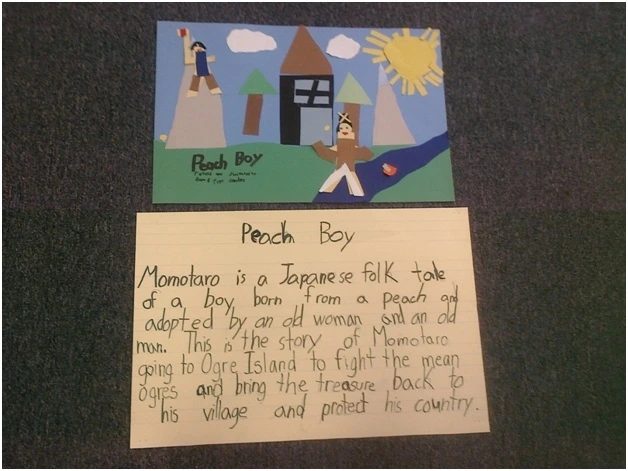 Peach Boy
Peach Boy
Momotaro is a Japanese folk tale
of a boy born from a peach and
adopted by an old woman and an old
man. This is the story of Momotaro
going to Ogre Island to fight the mean
ogres and bring the treasure back to
his village and protect his country.